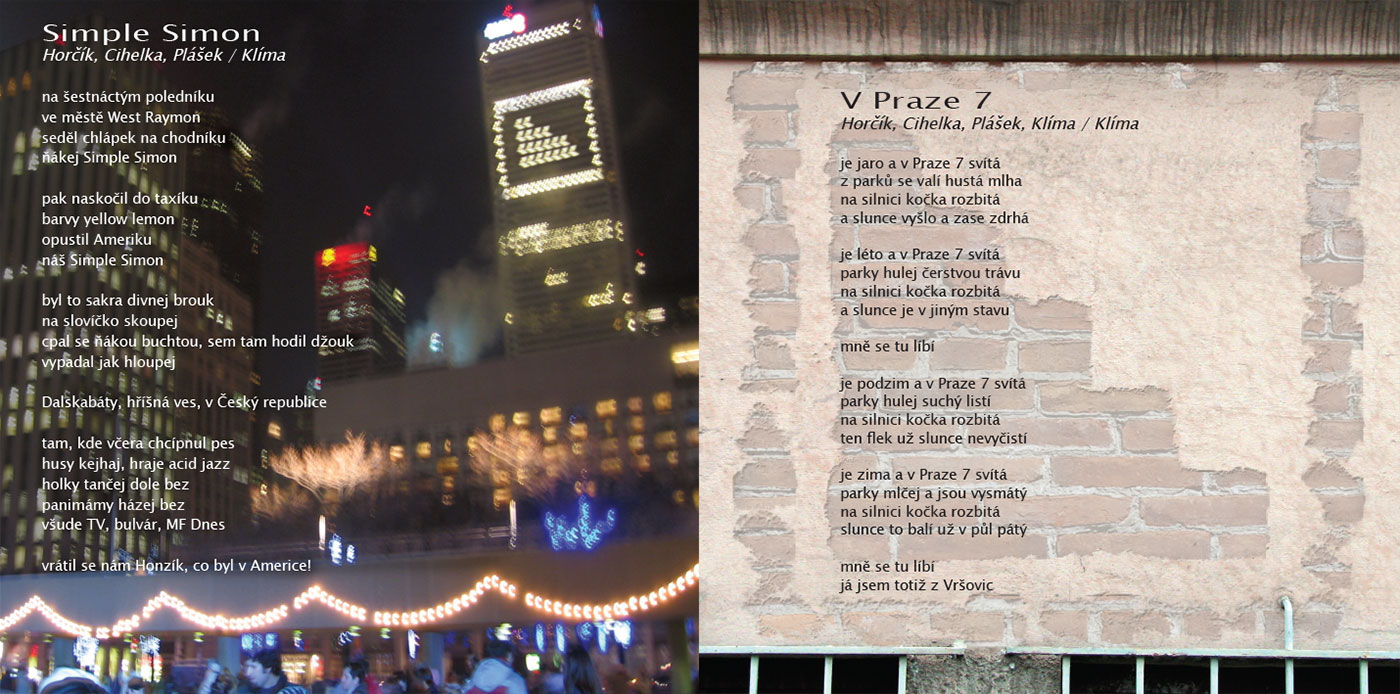 Simple Simon
Horčík, Cihelka, Plášek / Klíma
na šestnáctým poledníku
ve městě West Raymon
seděl chlápek na chodníku
ňákej Simple Simon
pak naskočil do taxíku
barvy yellow lemon
opustil Ameriku
náš Simple Simon
byl to sakra divnej brouk
na slovíčko skoupej
cpal se ňákou buchtou, sem tam hodil džouk
vypadal jak hloupej
Dalskabáty, hříšná ves, v Český republice
tam, kde včera chcípnul pes
husy kejhaj, hraje acid jazz
holky tančej dole bez
panimámy házej bez
všude TV, bulvár, MF Dnes
vrátil se nám Honzík, co byl v Americe!
V Praze 7
Horčík, Cihelka, Plášek, Klíma / Klíma
je jaro a v Praze 7 svítá
z parků se valí hustá mlha
na silnici kočka rozbitá
a slunce vyšlo a zase zdrhá
je léto a v Praze 7 svítá
parky hulej čerstvou trávu
na silnici kočka rozbitá
a slunce je v jiným stavu
mně se tu líbí
je podzim a v Praze 7 svítá
parky hulej suchý listí
na silnici kočka rozbitá
ten flek už slunce nevyčistí
je zima a v Praze 7 svítá
parky mlčej a jsou vysmátý
na silnici kočka rozbitá
slunce to balí už v půl pátý
mně se tu líbí
já jsem totiž z Vršovic